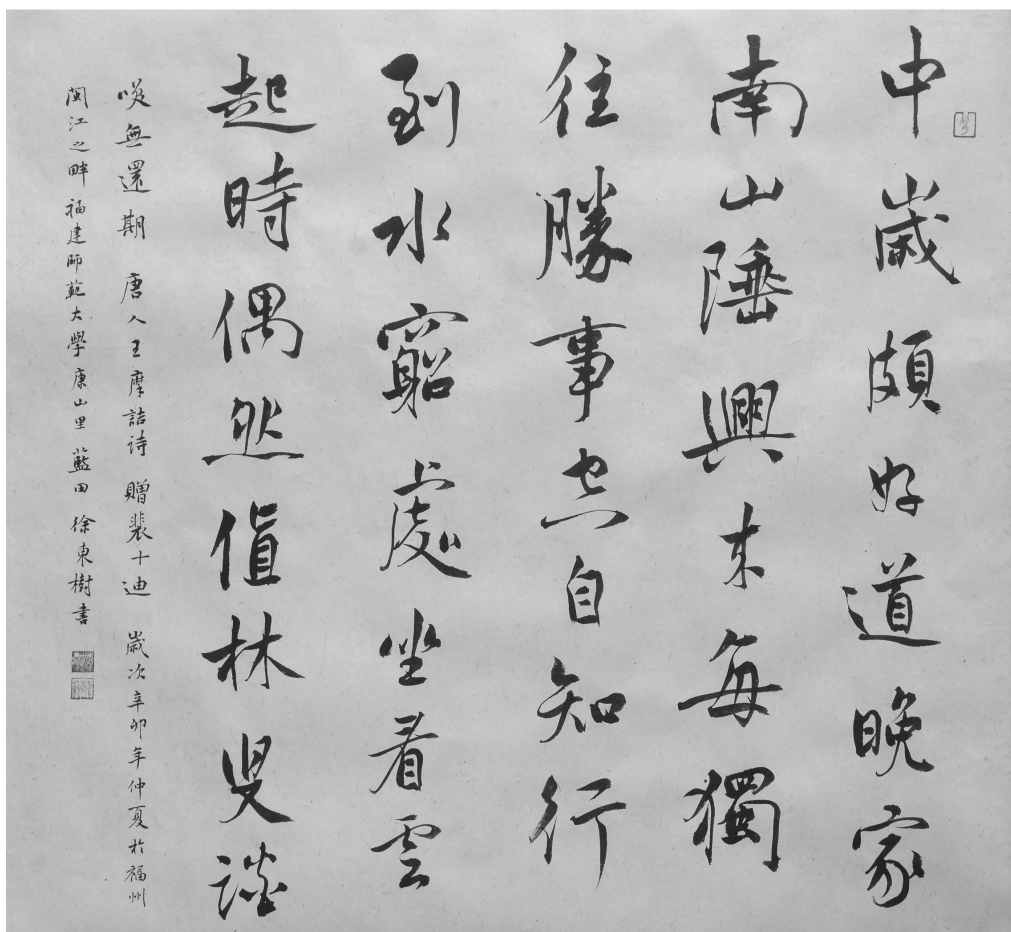 中歲頗好道晚家
南山陲興來每獨
往勝事空自知行
到水窮處坐看雲
起時偶然值林叟談
咲無還期 唐人王摩詰诗 贈裴十迪 歲次辛卯年仲夏於福州
闽江之畔 福建師範大學康山里 藍田 徐東樹書